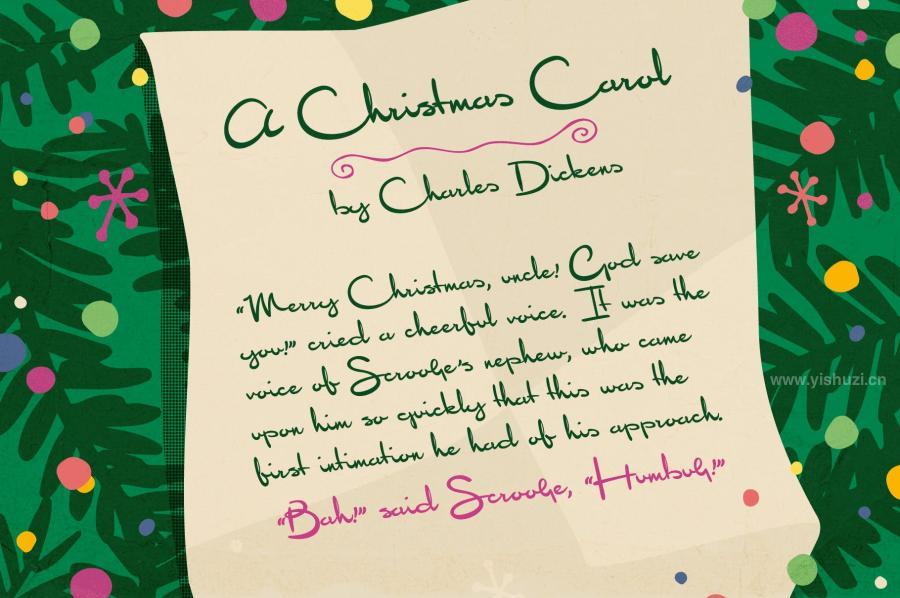 A Christmas Carol
by Charles Dickens
“Merry Christmas, uncle! God save
you!” cried a cheerful voice. It was the
voice of Scrooge’s nephew, who came
upon him so quickly that this was the
first intimation he had of his approach.
“Bah!” said Scrooge, “Humbug!”
www.yishuzi.cn